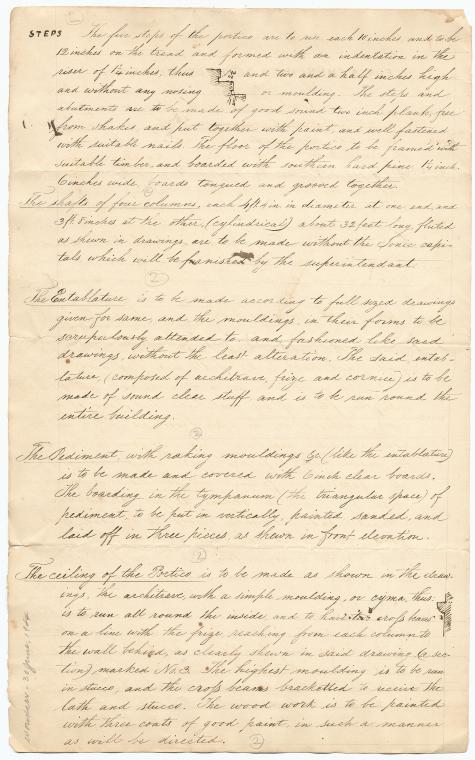 STEPS
The five steps of the portico are to rise each 10 inches and to be
12 inches on the tread and formed with an indentation in the
riser of 1¼ inches, thus and two and a half inches high
and without any nosing or moulding. The steps and
abutments are to be made of good sound two inch plank, free
from shakes and put together with paint, and well fastened
with suitable nails. The floor of the portico to be framed with
suitable timber, and boarded with southern hard pine 1¼ inch.
6 inches wide, boards tongued and grooved together.
The shafts of four columns, each 4ft 4 in. in diameter at one end, and
3ft. 8 inches at the other, (cylindrical) about 32 feet long, fluted
as shewn in drawings, are to be made without the Ionic capi-
tals which will be furnished by the superintendant.
(2)
The Entablature is to be made according to full sized drawings
given for same, and the mouldings, in their forms to be
scrupulously attended to and fashioned like said
drawings, without the least alteration. The said entab-
lature, (composed of architrave, frize and cornice) is to be
made of sound clear stuff and is to be run round the
entire building.
(2)
The Pediment, with raking mouldings &c. (like the intablature)
is to be made and covered with 6 inch clear boards.
The boarding, in the tympanum (the triangular space) of
pediment, to be put in vertically, painted sanded, and
laid off in three pieces as shewn in front elevation.
(2)
The ceiling of the Portico is to be made as shown in the draw-
ings, the architrave, with a simple moulding, or cyma, thus:
is to run all round the inside and to have cross beams
on a line with the frize reaching from each column to
the wall behind, as clearly shewn in said drawing (a sec-
tion) marked No. 3. The highest moulding is to be run
in stucco, and the cross beams bracketted to receive the
lath and stucco. The wood work is to be painted
with three coats of good paint, in such a manner
as will be directed.
(2)